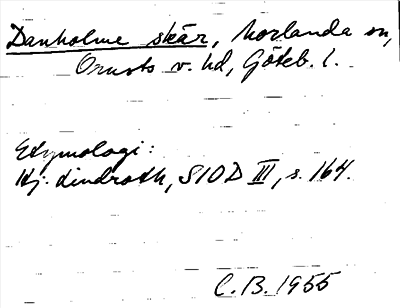 Danholme skär, Morlanda sn,
Orusts v. hd, Göteb. l.
Etymologi:
Hj. Lindroth, SIOD III, s. 164.
C.B. 1955